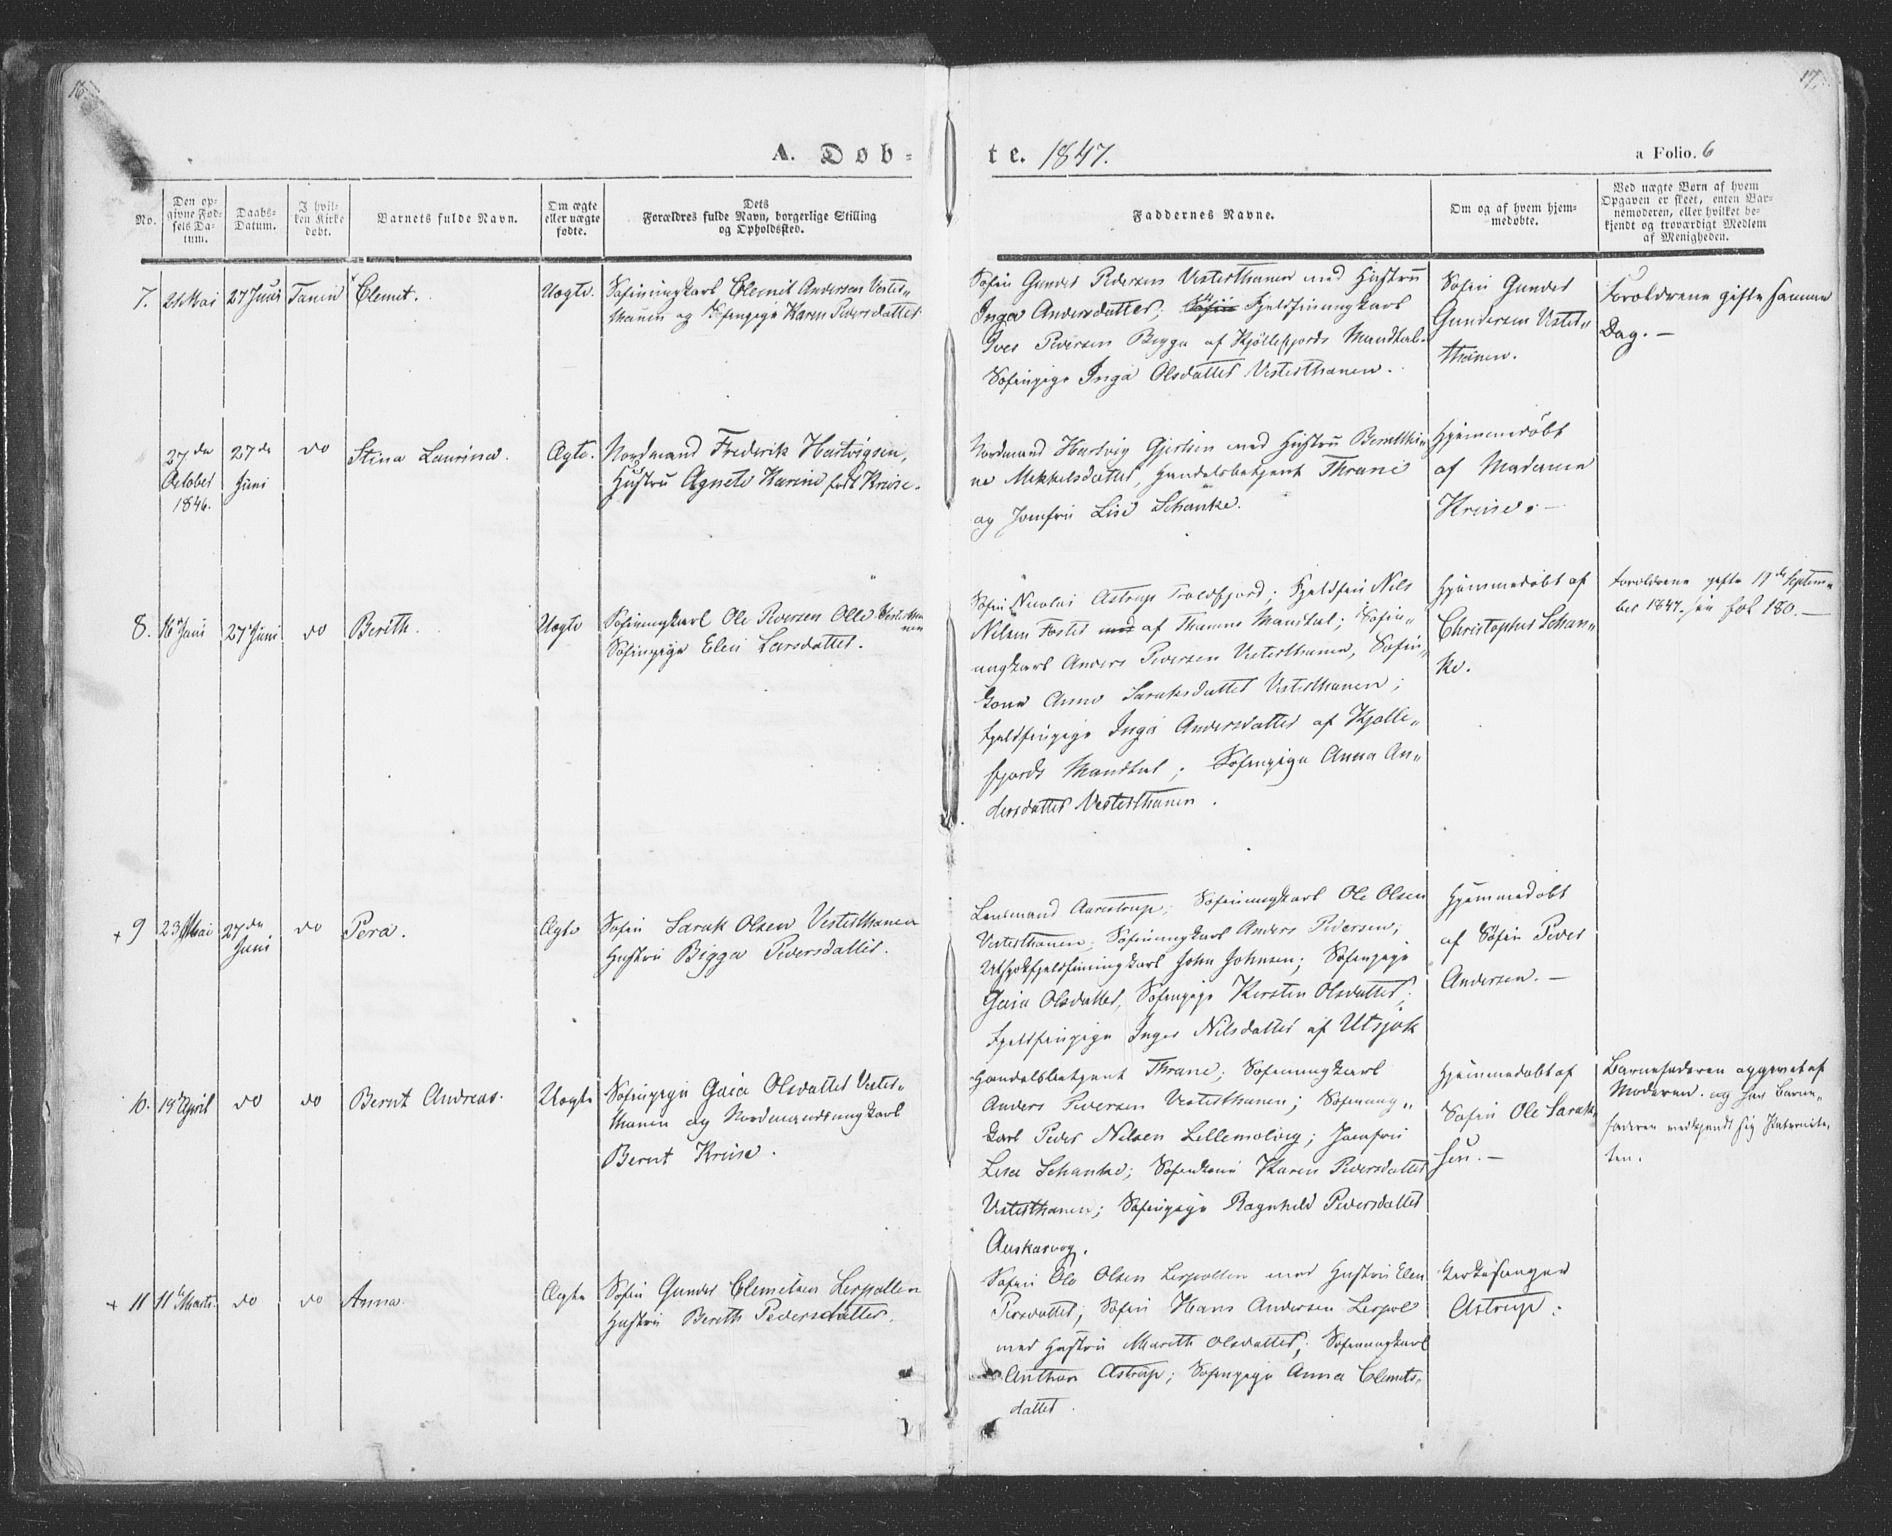 16.
17.
A. Døb-
te. 1847.
a Folio. 6
No.
Den op-
givne Fød-
sels Da-
tum.
Daabs-
Datum.
I hvil-
ken Kirke
døbt.
Barnets fulde Navn.
Om ægte
eller uægte
fødte.
Dets
Forældres fulde Navn, borgerlige Stilling
og Opholdssted.
Faddernes Navne.
Om og af hvem hjem-
medøbte.
Ved uægte Børn af hvem
Opgaven er skeet, enten Bar-
nemoderen, eller hvilket be-
kjendt og troværdigt Medlem
af Menigheden.
7.
Mai
27 Juni
Tanen
Clemet.
Uægte.
Søfinungkarl Clemit Andersen Vester-
thanen og Søfinpige Karen Pedersdatter
Søfin Gunder Pedersen Vesterthanen med Hustru
Inga Andersdatter, Søfin Fjeldfinungkarl
Iver Pedersen Bigga af Kjøllefjords Mandtal.
Søfinpige Inga Olsdatter Vesterthanen.
Søfin Gunder
Gundersen Vester-
thanen.
Forældrene gifte samme
Dag. —
27de
October
1846.
27de
Juni
do
Stina Laurina.
Ægte.
Nordmand Frederik Hartvigsen,
Hustru Agnete Karine født Kreise.
Nordmand Hartvig Gjertsen med Hustru Bereththi-
ne Mikkelsdatter, Handelsbetjent Thrane
og Jomfru Lise Schanke.
Hjemmedøbt
af Madame
Kreise. —
8.
16 Juni
27 Juni
do
Berith.
Uægte
Søfinungkarl Ole Pedersen Olle Vestertha-
nen
Søfinpige Elen Larsdatter.
Søfin Nicolai Astrup Troldfjord; Fjeldfin Nils
Nilsen Foster med af Thanens Mandtal; Søfin-
ungkarl Anders Pedersen Vesterthanen, Søfin-
kone Anne Saraksdatter Vesterthanen;
Fjeldfinpige Inga Andersdatter af Kjølle-
fjords Mandtal; Søfinpige Anna An-
dersdatter Vesterthanen.
Hjemmedøbt af
Christopher Schan-
ke.
Forældrene gifte 19de Septem-
ber 1847. fol 180. —
+ 9
23 Mai
27de
Juni
do
Pera.
Ægte
Søfin Sarak Olsen Vesterthanen
Hustru Bigga Pedersdatter.
Lensmand Aarestrup; Søfinungkarl Ole Olsen
Vesterthanen; Søfinungkarl Anders Pedersen;
Utsjokfjeldfinungkarl John Johnsen; Søfinpige
Gaia Olsdatter, Søfinpige Kersten Olsdatter;
Fjeldfinpige Inger Nilsdatter af Utsjok
Hjemmedøbt
af Søfin Peder
Andersen. —
10.
19 April
do
do
Bernt Andreas.
Uægte
Søfinpige Gaia Olsdatter Vester-
thanen og Nordmandsungkarl
Bernt Kreise.
Handelsbetjent Thrane; Søfinungkarl
Anders Pedersen Vesterthanen; Søfinung-
karl Peder Nilsen Lillemolvig; Jomfru
Lise Schanke; Søfinkone Karen Pedersdatter
Vesterthanen; Søfinpige Ragnhild Pedersdatter
Auskarvog.
Hjemmedøbt af
Søfin Ole Sarak-
sen. —
Barnefaderen opgivet af
Moderen. og har Barne-
faderen vedkjendt sig Paternite-
ten.
+ 11
11te Marts
do
do
Anna.
Ægte
Søfin Gunder Clemetsen Lerpollen
Hustru Bereth Pedersdatter.
Søfin Ole Olsen Lerpollen med Hustru Elen
Persdatter, Søfin Hans Andersen Lerpol
med Hustru Mareth Olsdatter; Søfinungkarl
Anthon Astrup; Søfinpige Anna Clemets-
datter.
Kirkesanger
Astrup.